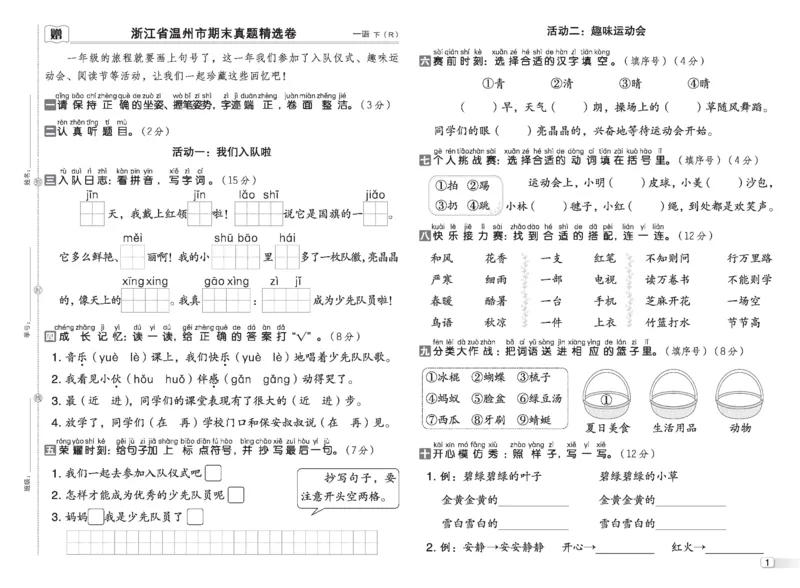 赠
浙江省温州市期末真题精选卷
一语 下（R）
一年级的旅程就要画上句号了，这一年我们参加了入队仪式、趣味运
动会、阅读节等活动，让我们一起珍藏这些回忆吧！
qǐng bǎo chí zhèng què de zuò zī wò bǐ zī shì zì jì duān zhèng juàn miàn zhěng jié
一 请保持正确的坐姿、握笔姿势，字迹端正，卷面整洁。（3分）
rèn zhēn tīng tí mù
二 认真听题目。（2分）
活动一：我们入队啦
rù duì rì zhì kàn pīn yīn xiě zì cí
三 入队日志：看拼音，写字词。（15分）
jīn jīn lǎo shī jiǎo
天，我戴上红领 啦！ 说它是国旗的一 。
měi shū bāo hái
它多么鲜艳、 丽啊！我的小 里 多了一枚队徽，亮晶晶
xīng xing gāo xìng zì jǐ
的，像天上的 。我真 ： 成为少先队员啦！
chéng zhǎng jì yì dú yi dú gěi zhèng què de dá àn dǎ
四 成长记忆：读一读，给正确的答案打“√”。（8分）
1. 音乐（yuè lè）课上，我们快乐（yuè lè）地唱着少先队队歌。
2. 我看见小伙（hǒu huǒ）伴感（gǎn gǎng）动得哭了。
3. 最（近 进），同学们的课堂表现有了很大的（近 进）步。
4. 放学了，同学们（在 再）学校门口和保安叔叔说（在 再）见。
róng yào shí kè gěi jù zi jiā shàng biāo diǎn fú hào bìng chāo xiě zuì hòu yí jù
五 荣耀时刻：给句子加上标点符号，并抄写最后一句。（7分）
1. 我们一起去参加入队仪式吧
2. 怎样才能成为优秀的少先队员呢
3. 妈妈 我是少先队员了
抄写句子，要
注意开头空两格。
姓名：
学号：
班级：
活动二：趣味运动会
sài qián shí kè xuǎn zé hé shì de hàn zì tián kòng
六 赛前时刻：选择合适的汉字填空。（填序号）（4分）
①青 ②清 ③晴 ④睛
（ ）早，天气（ ）朗，操场上的（ ）草随风舞蹈。
同学们的眼（ ）亮晶晶的，兴奋地等待运动会开始。
gè rén tiǎo zhàn sài xuǎn zé hé shì de dòng cí tián zài kuò hào lǐ
七 个人挑战赛：选择合适的动词填在括号里。（填序号）（4分）
①拍 ②踢
③扔 ④跳
运动会上，小明（ ）皮球，小美（ ）沙包，
小林（ ）毽子，小红（ ）绳，到处都是欢笑声。
kuài lè jiē lì sài zhǎo dào hé shì de dā pèi lián yi lián
八 快乐接力赛：找到合适的搭配，连一连。（12分）
和风 花香 一支 红笔 不知则问 行万里路
严寒 细雨 一部 电视 读万卷书 不能则学
春暖 酷暑 一台 手机 芝麻开花 一场空
鸟语 秋凉 一件 上衣 竹篮打水 节节高
fēn lèi dà zuò zhàn bǎ cí yǔ sòng jìn xiāng yìng de lán zi lǐ
九 分类大作战：把词语送进相应的篮子里。（填序号）（8分）
①冰棍 ②蝴蝶 ③梳子
④蚂蚁 ⑤脸盆 ⑥绿豆汤
⑦西瓜 ⑧牙刷 ⑨蜻蜓
①
夏日美食 生活用品 动物
kāi xīn mó fǎng xiù zhào yàng zi xiě yi xiě
十 开心模仿秀：照样子，写一写。（12分）
1. 例：碧绿碧绿的叶子 碧绿碧绿的小草
金黄金黄的 金黄金黄的
雪白雪白的 雪白雪白的
2. 例：安静→安安静静 开心→ 红火→
1